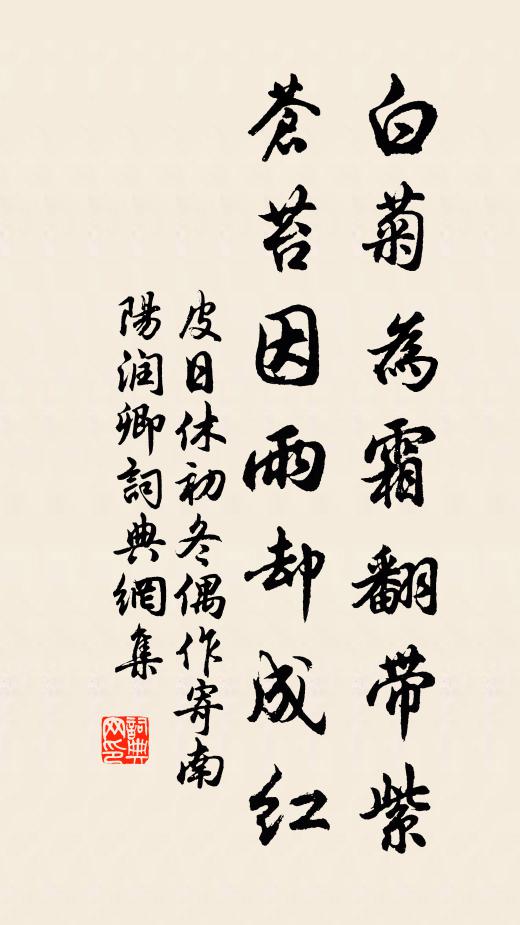 白菊為霜翻带紫
蒼苔因雨却成红
皮日休初冬偶作寄南
陽润卿詞典網集
詞典
网印